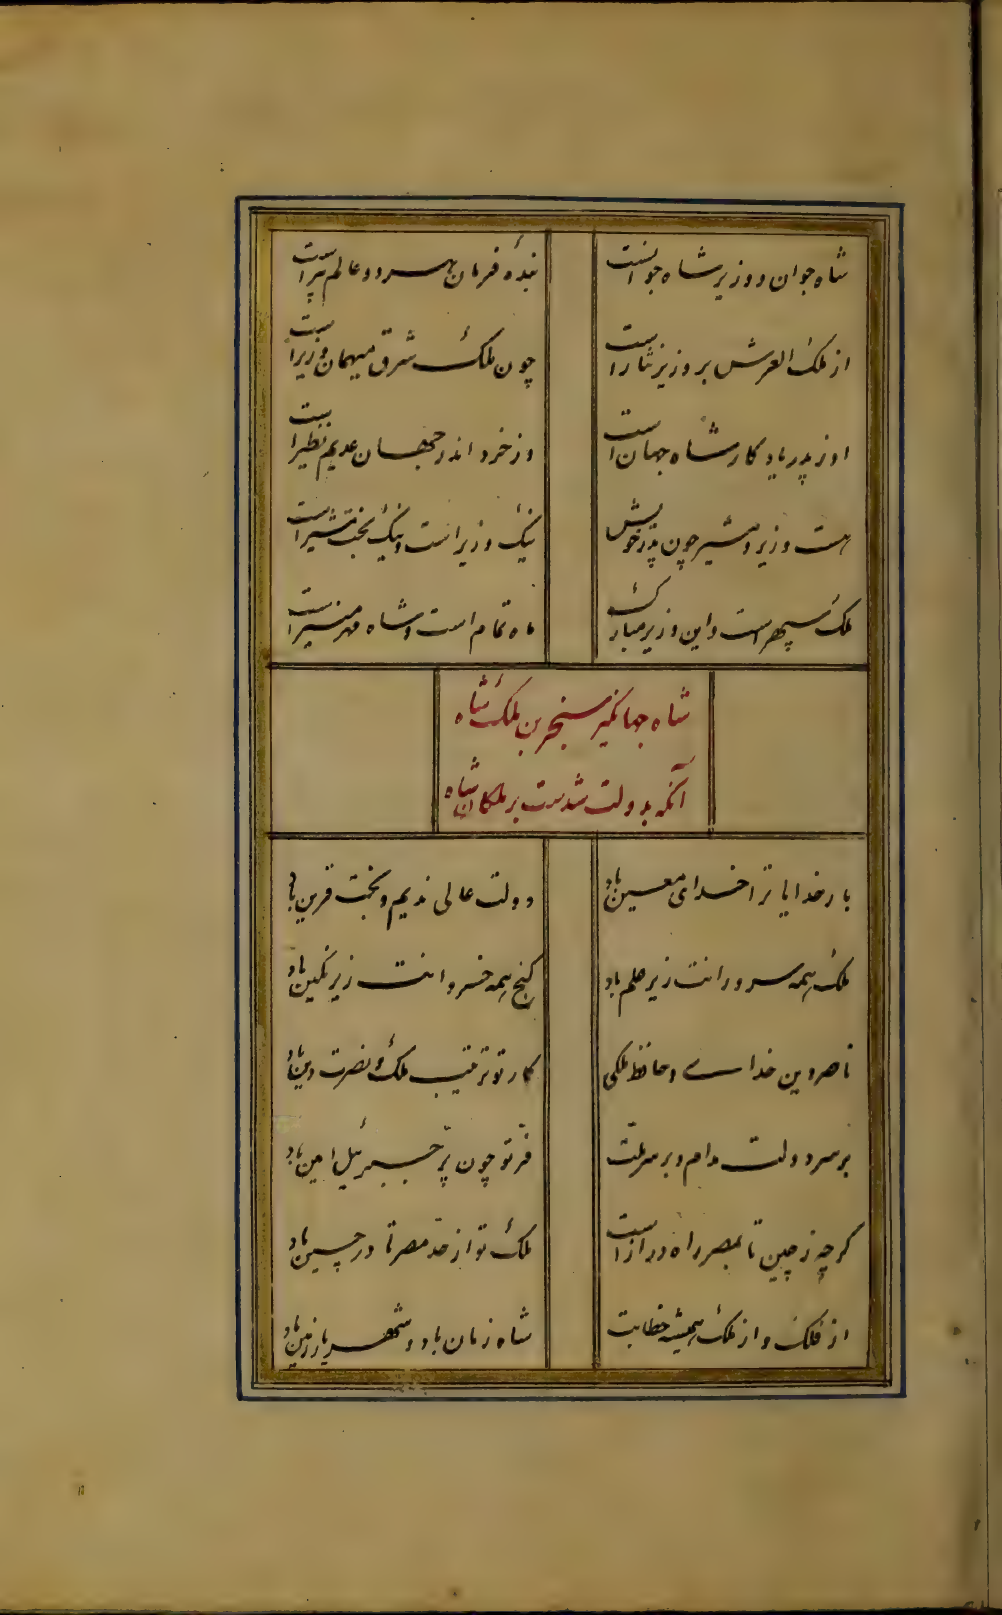 شاه جوان و وزیر شاه جوانست
بندهٔ فرمان هر دو عالم پیر است
از ملک العرش بر وزیر نثار است
چون ملک شرق میهمان وزیر است
او ز پدر یادگار شاه جهان است
وز خرد اندر جهان عدیم نظیر است
هست وزیر و مشیر چون پدر خویش
نیک وزیر است و نیک بخت مشیر است
ملک سپهر است و این وزیر مبارک
ماه تمام است و شاه مهر منیر است
شاه جهانگیر سنجر بن ملک شاه
آنکه بدولت شدست بر ملکان شاه
بار خدایا ترا خدای معین باد
دولت عالی ندیم و بخت قرین باد
ملک همه سرورانت زیر علم باد
گنج همه خسروانت زیر نگین باد
ناصر دین خدای و حافظ ملکی
کار تو ترتیب ملک و نصرت دین باد
بر سر دولت مدام و بر سر ملت
فر تو چون پر جبرئیل امین باد
گرچه ز چین تا بمصر راه دراز است
ملک تو از حد مصر تا در چین باد
از فلک و از ملک همیشه خطابت
شاه زمان باد و شهریار زمین باد